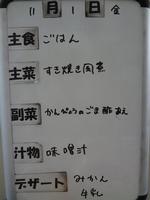 11月1日 金
主食 ごはん
主菜 すき焼き風煮
副菜 かんぴょうのごま酢あえ
汁物 味噌汁
デザート みかん
牛乳